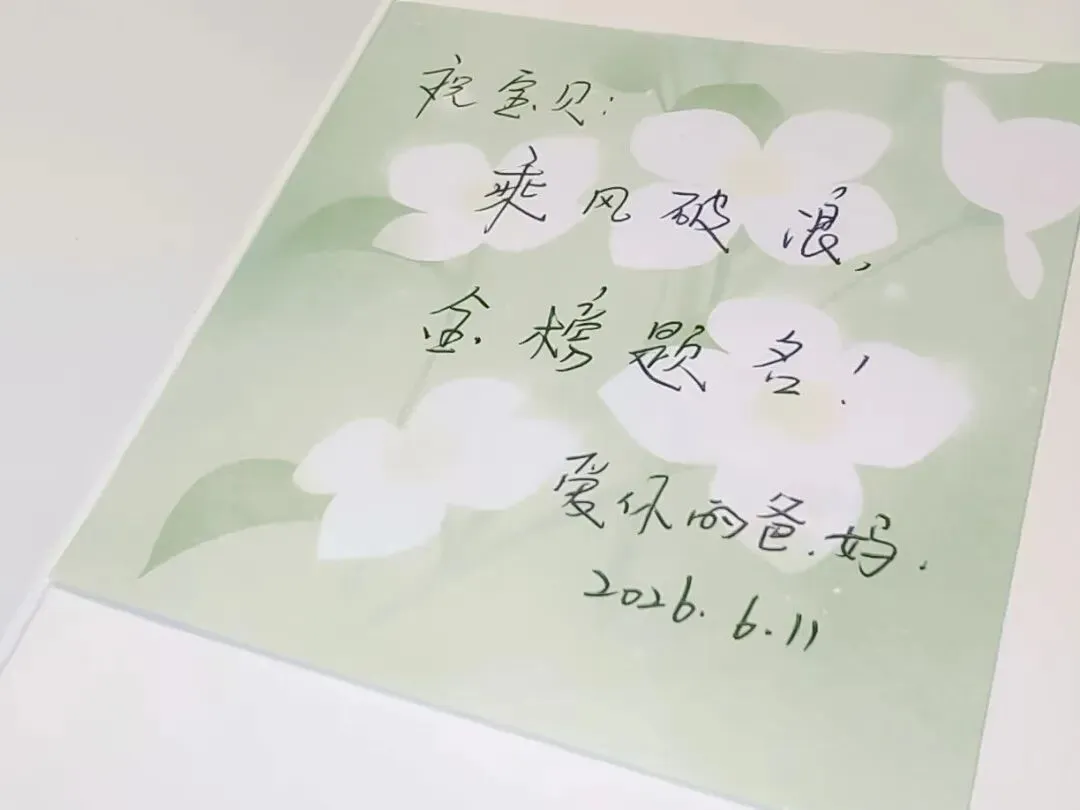 祝宝贝:
乘风破浪,
金榜题名!
爱你的爸.妈.
2026.6.11